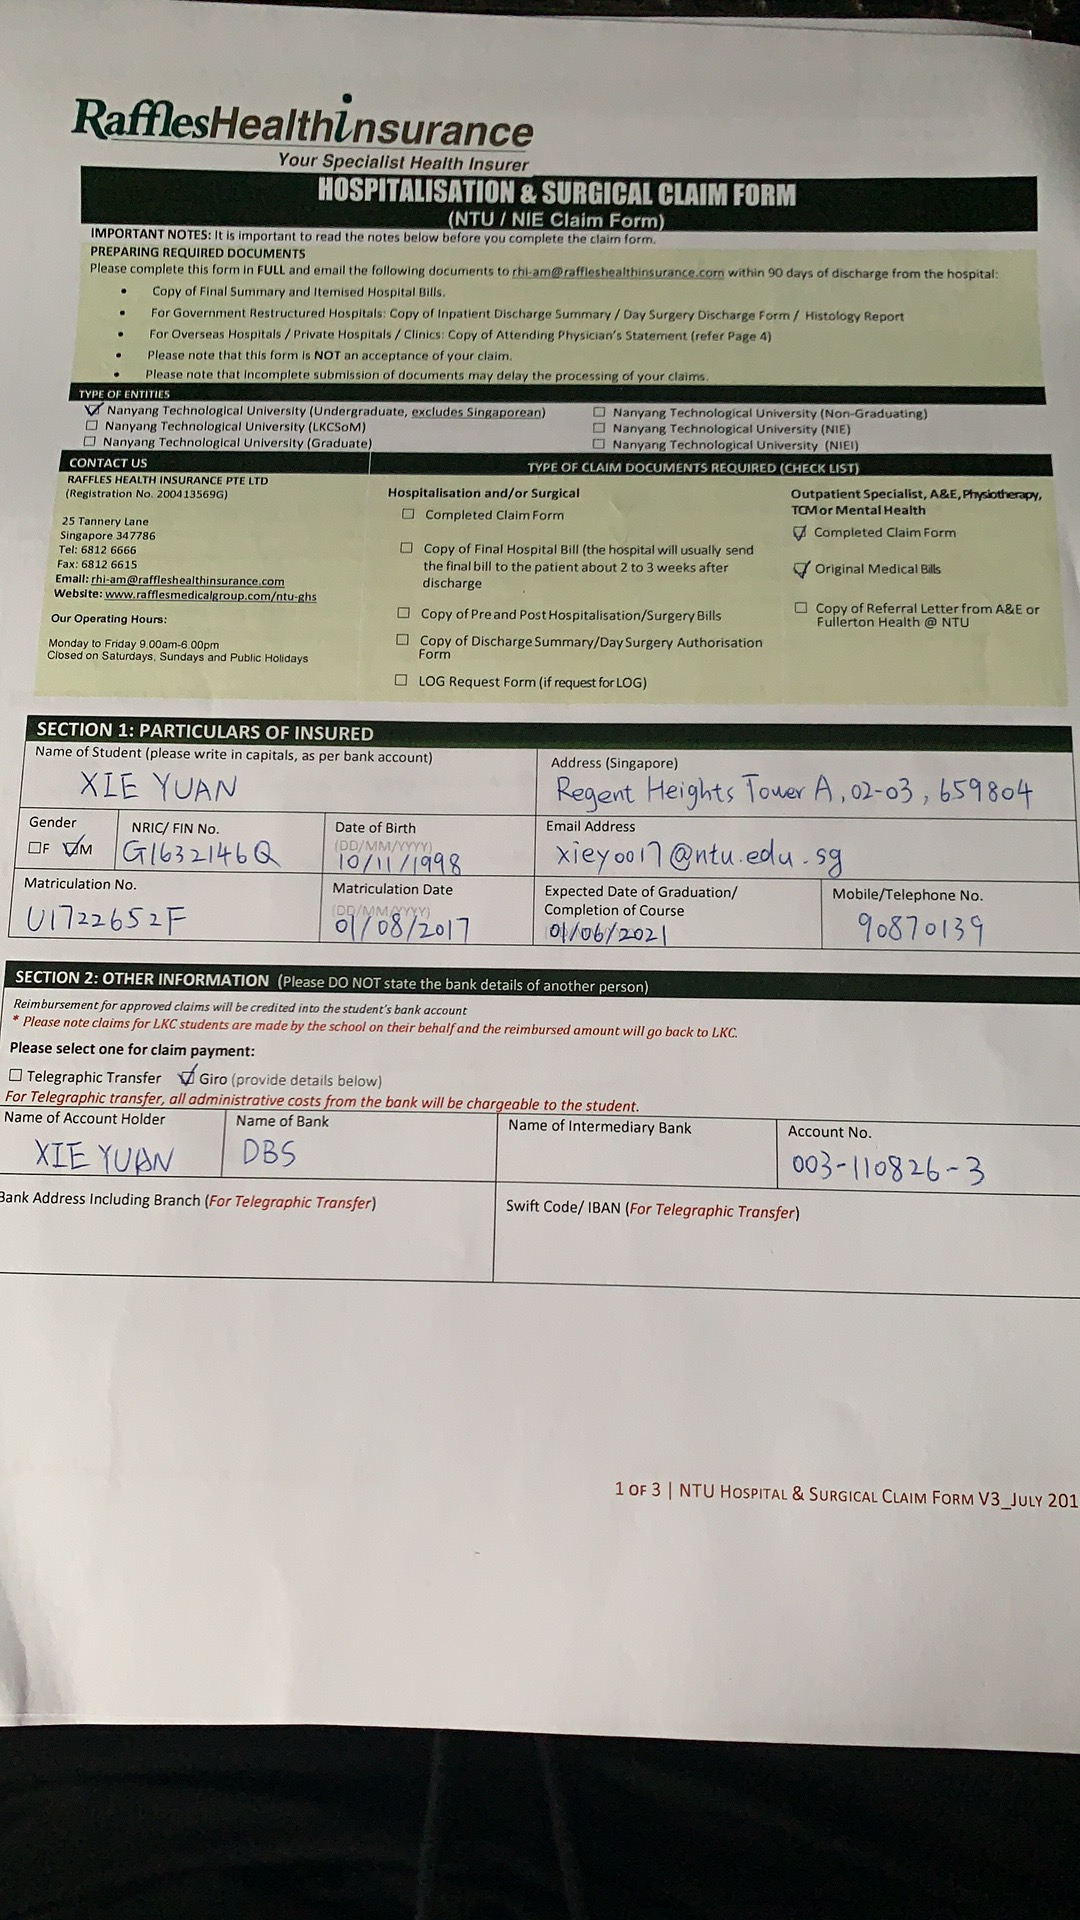 RafflesHealthinsurance
Your Specialist Health Insurer
HOSPITALISATION & SURGICAL CLAIM FORM
(NTU / NIE Claim Form)
IMPORTANT NOTES: It is important to read the notes below before you complete the claim form.
PREPARING REQUIRED DOCUMENTS
Please complete this form in FULL and email the following documents to rhi-am@raffleshealthinsurance.com within 90 days of discharge from the hospital:
• Copy of Final Summary and Itemised Hospital Bills.
• For Government Restructured Hospitals: Copy of Inpatient Discharge Summary / Day Surgery Discharge Form / Histology Report
• For Overseas Hospitals / Private Hospitals / Clinics: Copy of Attending Physician's Statement (refer Page 4)
• Please note that this form is NOT an acceptance of your claim.
• Please note that incomplete submission of documents may delay the processing of your claims.
TYPE OF ENTITIES
☑ Nanyang Technological University (Undergraduate, excludes Singaporean)
☐ Nanyang Technological University (LKCSoM)
☐ Nanyang Technological University (Graduate)
☐ Nanyang Technological University (Non-Graduating)
☐ Nanyang Technological University (NIE)
☐ Nanyang Technological University (NIEI)
CONTACT US
RAFFLES HEALTH INSURANCE PTE LTD
(Registration No. 200413569G)
25 Tannery Lane
Singapore 347786
Tel: 6812 6666
Fax: 6812 6615
Email: rhi-am@raffleshealthinsurance.com
Website: www.rafflesmedicalgroup.com/ntu-ghs
Our Operating Hours:
Monday to Friday 9.00am-6.00pm
Closed on Saturdays, Sundays and Public Holidays
TYPE OF CLAIM DOCUMENTS REQUIRED (CHECK LIST)
Hospitalisation and/or Surgical
☐ Completed Claim Form
☐ Copy of Final Hospital Bill (the hospital will usually send
the final bill to the patient about 2 to 3 weeks after
discharge
☐ Copy of Pre and Post Hospitalisation/Surgery Bills
☐ Copy of Discharge Summary/Day Surgery Authorisation
Form
☐ LOG Request Form (if request for LOG)
Outpatient Specialist, A&E, Physiotherapy,
TCM or Mental Health
☑ Completed Claim Form
☑ Original Medical Bills
☐ Copy of Referral Letter from A&E or
Fullerton Health @ NTU
SECTION 1: PARTICULARS OF INSURED
Name of Student (please write in capitals, as per bank account)
XIE YUAN
Address (Singapore)
Regent Heights Tower A, 02-03, 659804
Gender
☐F ☑M
NRIC/ FIN No.
G1632146Q
Date of Birth
(DD/MM/YYYY)
10/11/1998
Email Address
xiey0017@ntu.edu.sg
Matriculation No.
U1722652F
Matriculation Date
(DD/MM/YYYY)
01/08/2017
Expected Date of Graduation/
Completion of Course
01/06/2021
Mobile/Telephone No.
90870139
SECTION 2: OTHER INFORMATION (Please DO NOT state the bank details of another person)
Reimbursement for approved claims will be credited into the student's bank account
* Please note claims for LKC students are made by the school on their behalf and the reimbursed amount will go back to LKC.
Please select one for claim payment:
☐ Telegraphic Transfer ☑ Giro (provide details below)
For Telegraphic transfer, all administrative costs from the bank will be chargeable to the student.
Name of Account Holder
XIE YUAN
Name of Bank
DBS
Name of Intermediary Bank
Account No.
003-110826-3
Bank Address Including Branch (For Telegraphic Transfer)
Swift Code/ IBAN (For Telegraphic Transfer)
1 OF 3 | NTU HOSPITAL & SURGICAL CLAIM FORM V3_JULY 201